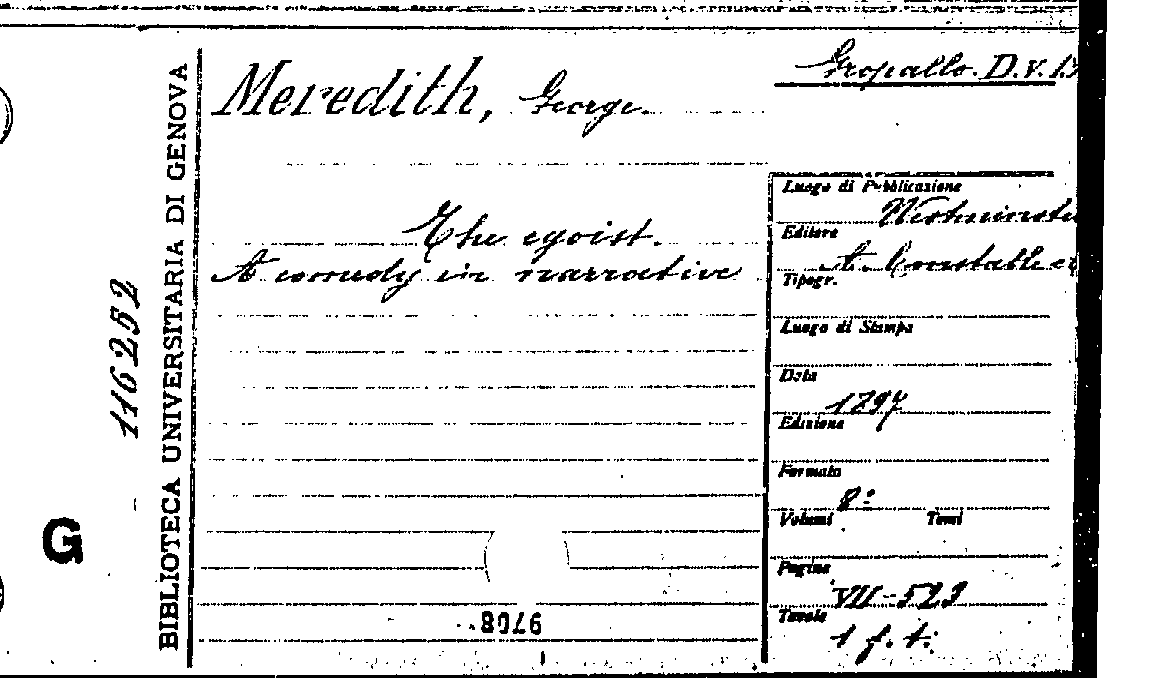 Gropallo. D.V.
Meredith, George.
The egoist.
A comedy in narrative
BIBLIOTECA UNIVERSITARIA DI GENOVA
116252
G
Luogo di Pubblicazione
Westminster
Editore
A. Constable
Tipogr.
Luogo di Stampa
Data
1897
Edizione
Formato
8º
Volumi Tomi
Pagine
VII-523
Tavole
1 f. t.
9708